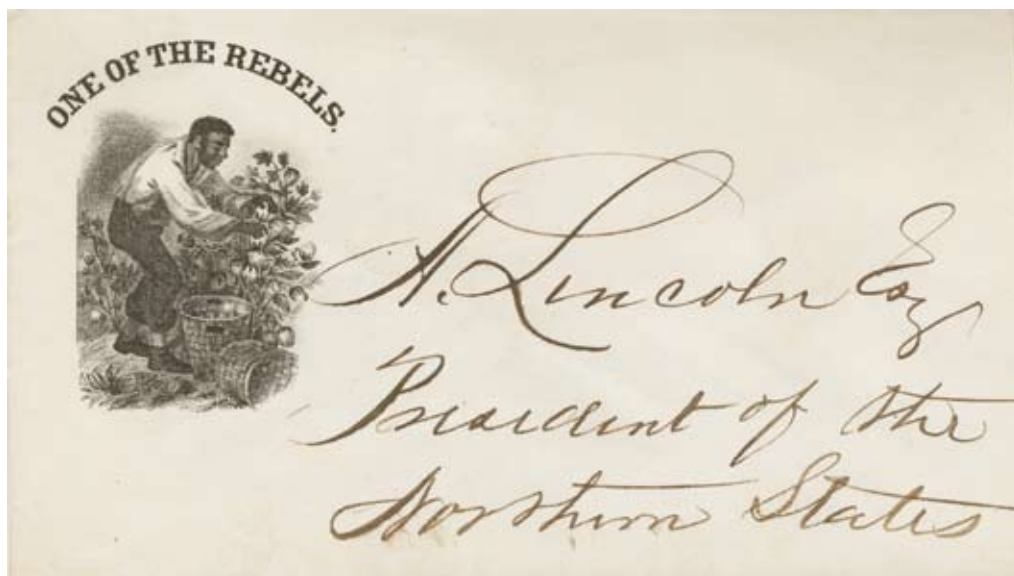 ONE OF THE REBELS.
A. Lincoln Esq
President of the
Northern States